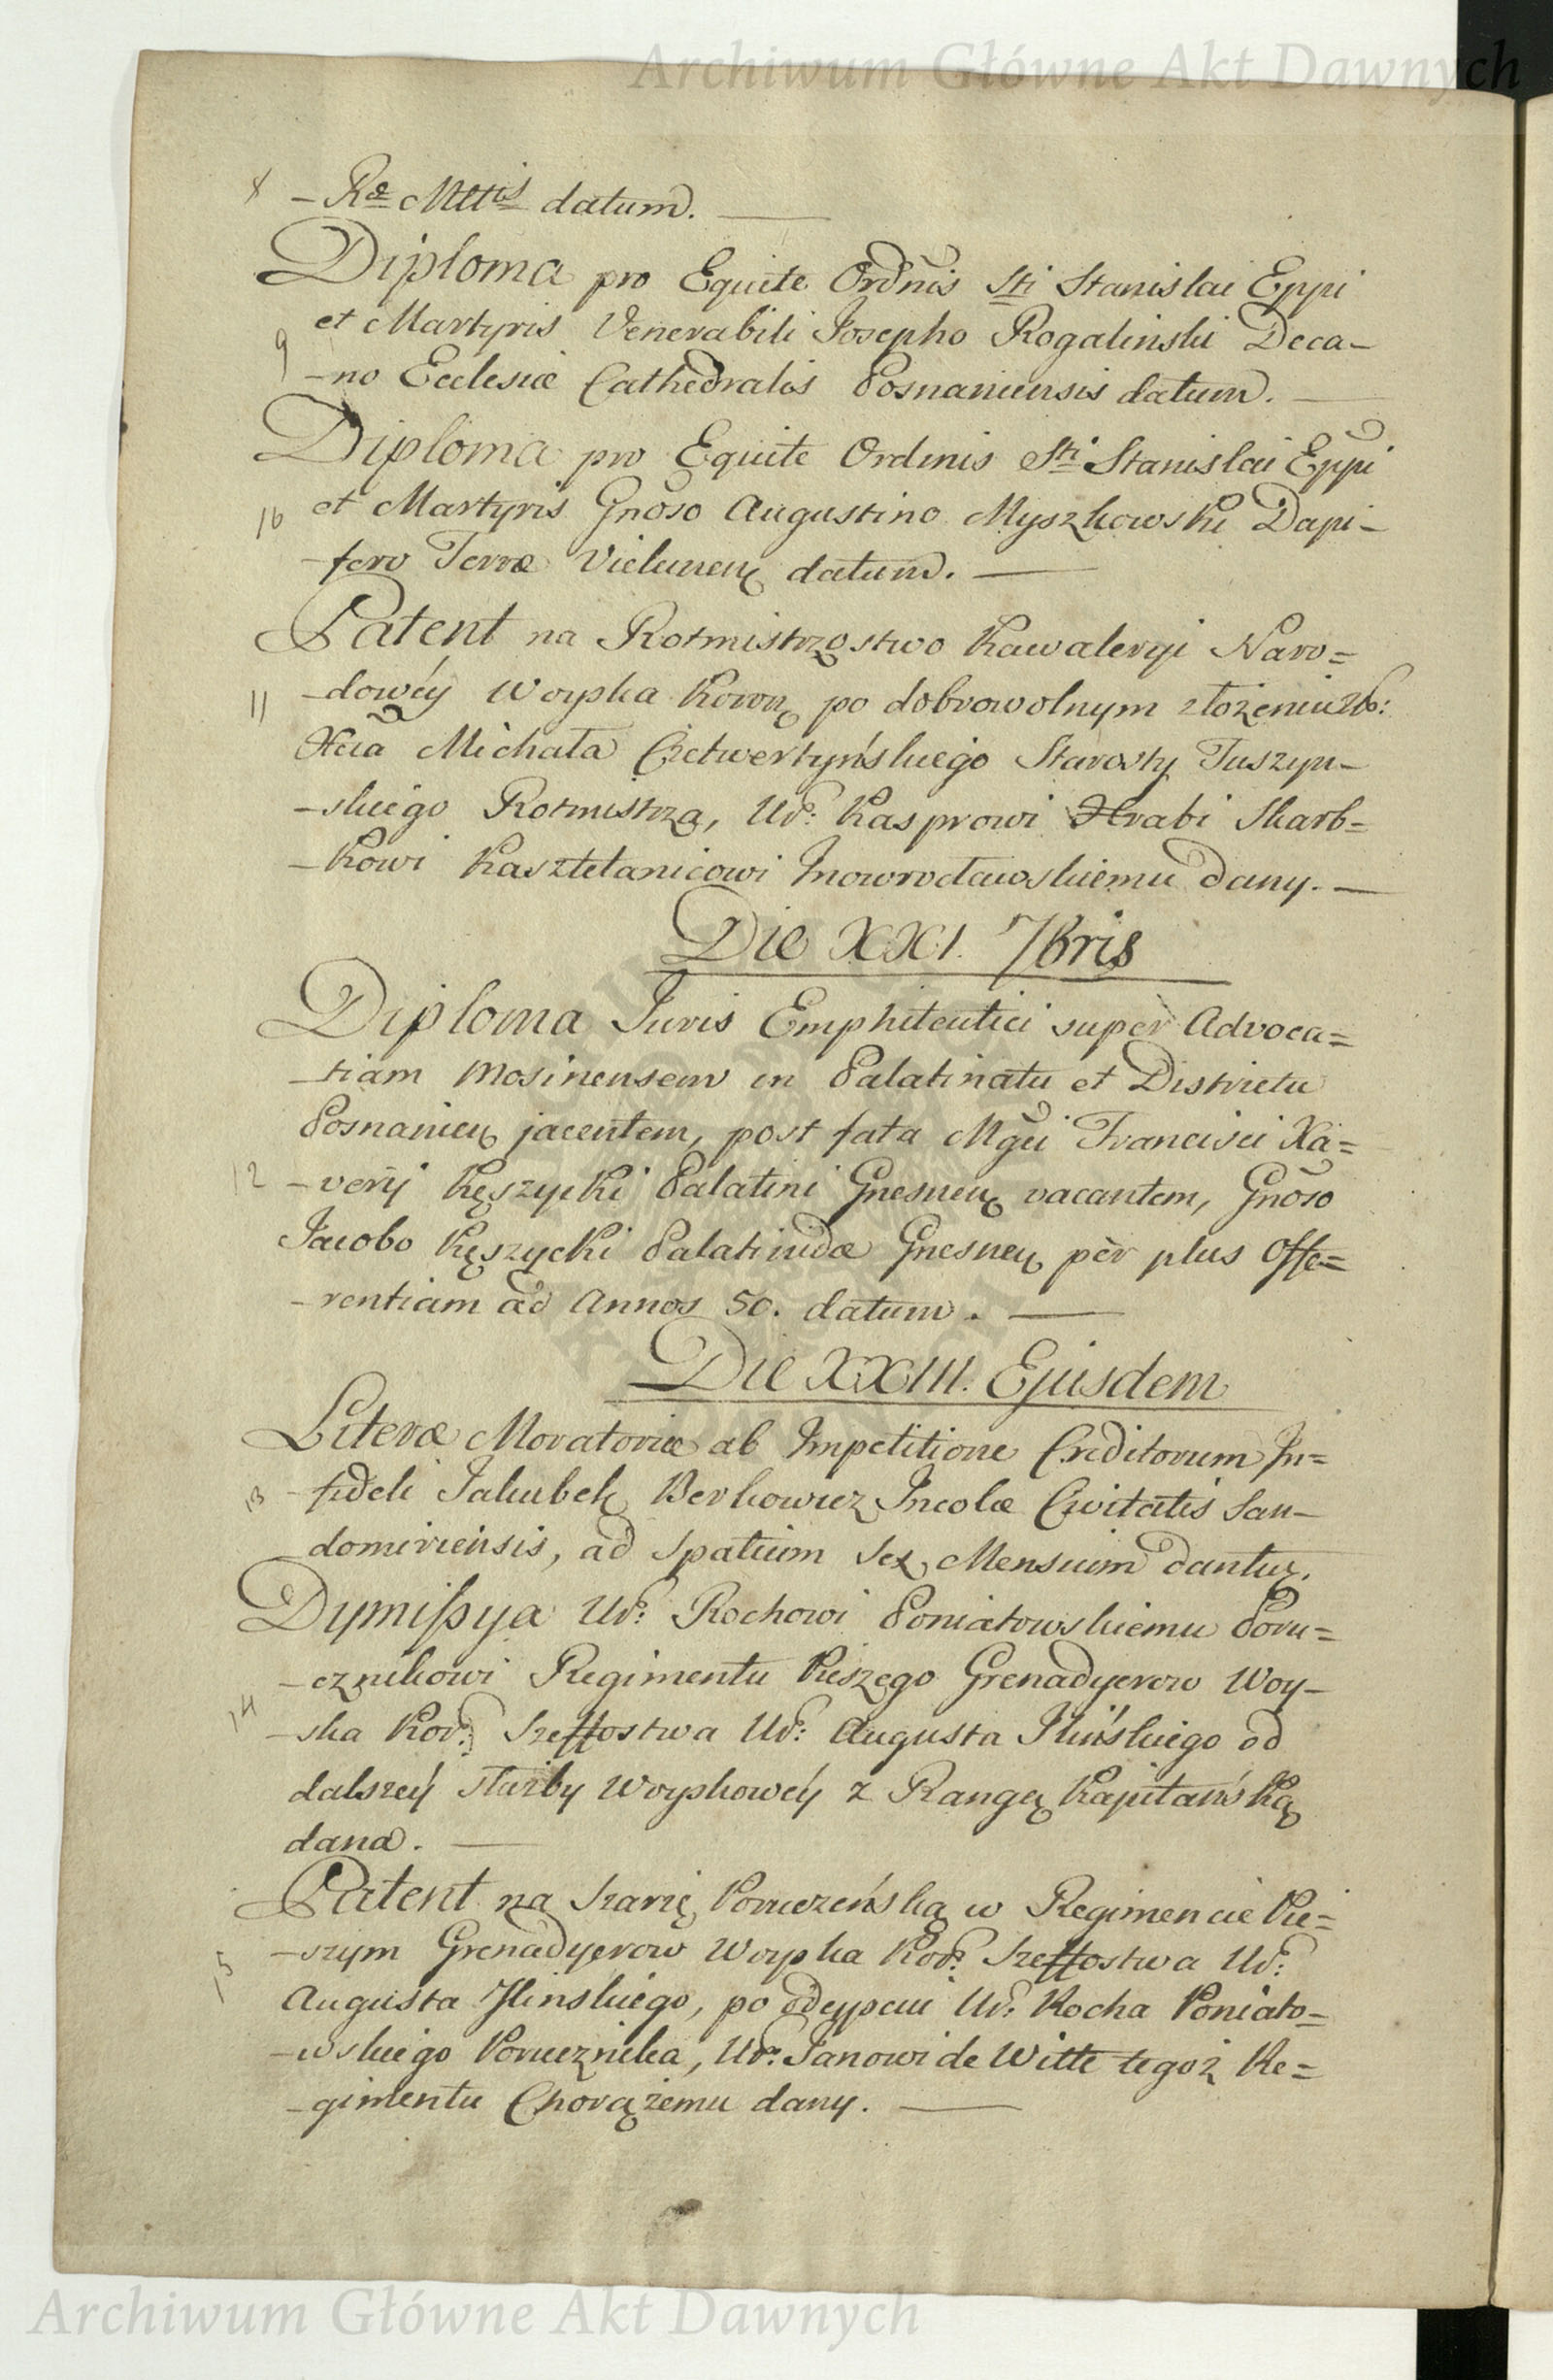 Archiwum Główne Akt Dawnych
8 -Rae Mttis datum.
Diploma pro Equite Ordnis Sti Stanislai Eppi
et Martyris Venerabili Josepho Rogalinski Deca-
9 -no Ecclesiæ Cathedralis Posnaniensis datum.
Diploma pro Equite Ordinis Sti Stanislai Eppi
10 et Martyris Gnoso Augustino Myszkowski Dapi-
-fero Terræ Vielunen datum.
Patent na Rotmistrzostwo Kawaleryi Naro=
11 -dowéy Woyska Koron po dobrowolnym złożeniu
Xcia Michała Czetwertyńskiego Starosty Tuszyn-
-skiego Rotmistrza, Ur: Kasprowi Hrabi Skarb=
-kowi Kasztelanicowi Jnowrocławskiemu dany.
Die XXI. 7bris
Diploma Juris Emphiteutici super Advoca=
-tiam Mosinensem in Palatinatu et Districtu
Posnanien jacentem, post fata Mgci Francisci Xa=
12 -verij Kęszycki Palatini Gnesnen vacantem, Gnoso
Jacobo Kęszycki Palatinidæ Gnesnen per plus Offe=
-rentiam ad Annos 50. datum.
Die XXIII. Ejusdem
Literæ Moratoriæ ab Impetitione Creditorum In=
13 -fideli Jakubek Berkowicz Incolæ Civitatis San-
domiriensis, ad Spatium Sex Mensium dantur.
Dymissya Ur: Rochowi Poniatowskiemu Poru=
-cznikowi Regimentu Pieszego Grenadyerow Woy-
14 -ska Kor: Szeffostwa Ur: Augusta Ilińskiego od
dalszéy służby Woyskowéy z Rangą Kapitańską
dana.
Patent na Szarżę Poruczeńską w Regimencie Pie=
-szym Grenadyerow Woyska Kor: Szeffostwa Ur:
15 Augusta Ilinskiego, po odeyściu Ur: Rocha Poniato=
-wskiego Porucznika, Ur: Janowi de Witte tegoż Re=
-gimentu Chorążemu dany.
Archiwum Główne Akt Dawnych